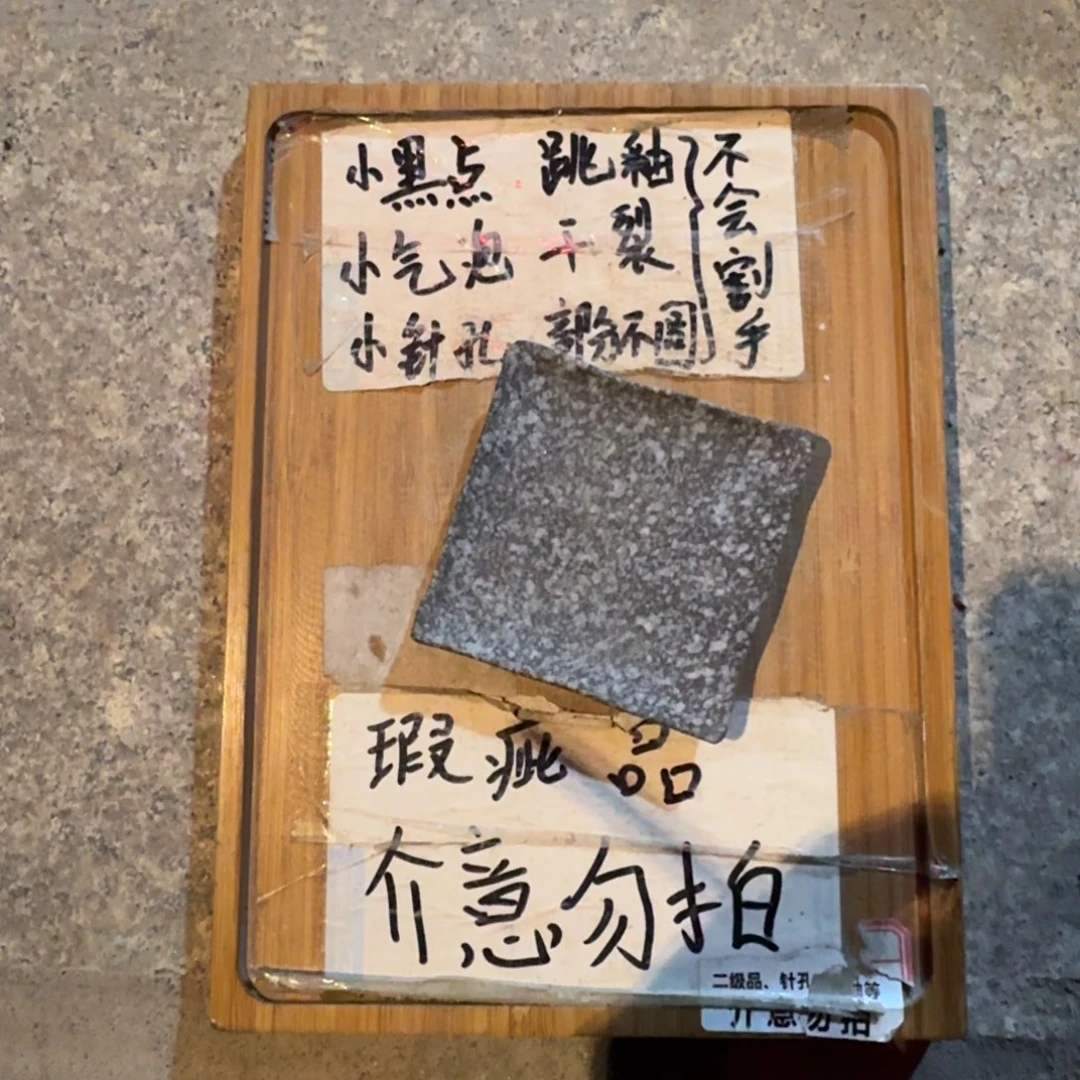 小黑点 跳釉
小气泡 干裂
小针孔 部分不圆
不会割手
瑕疵品
介意勿拍
二级品、针孔 釉等
介意勿拍